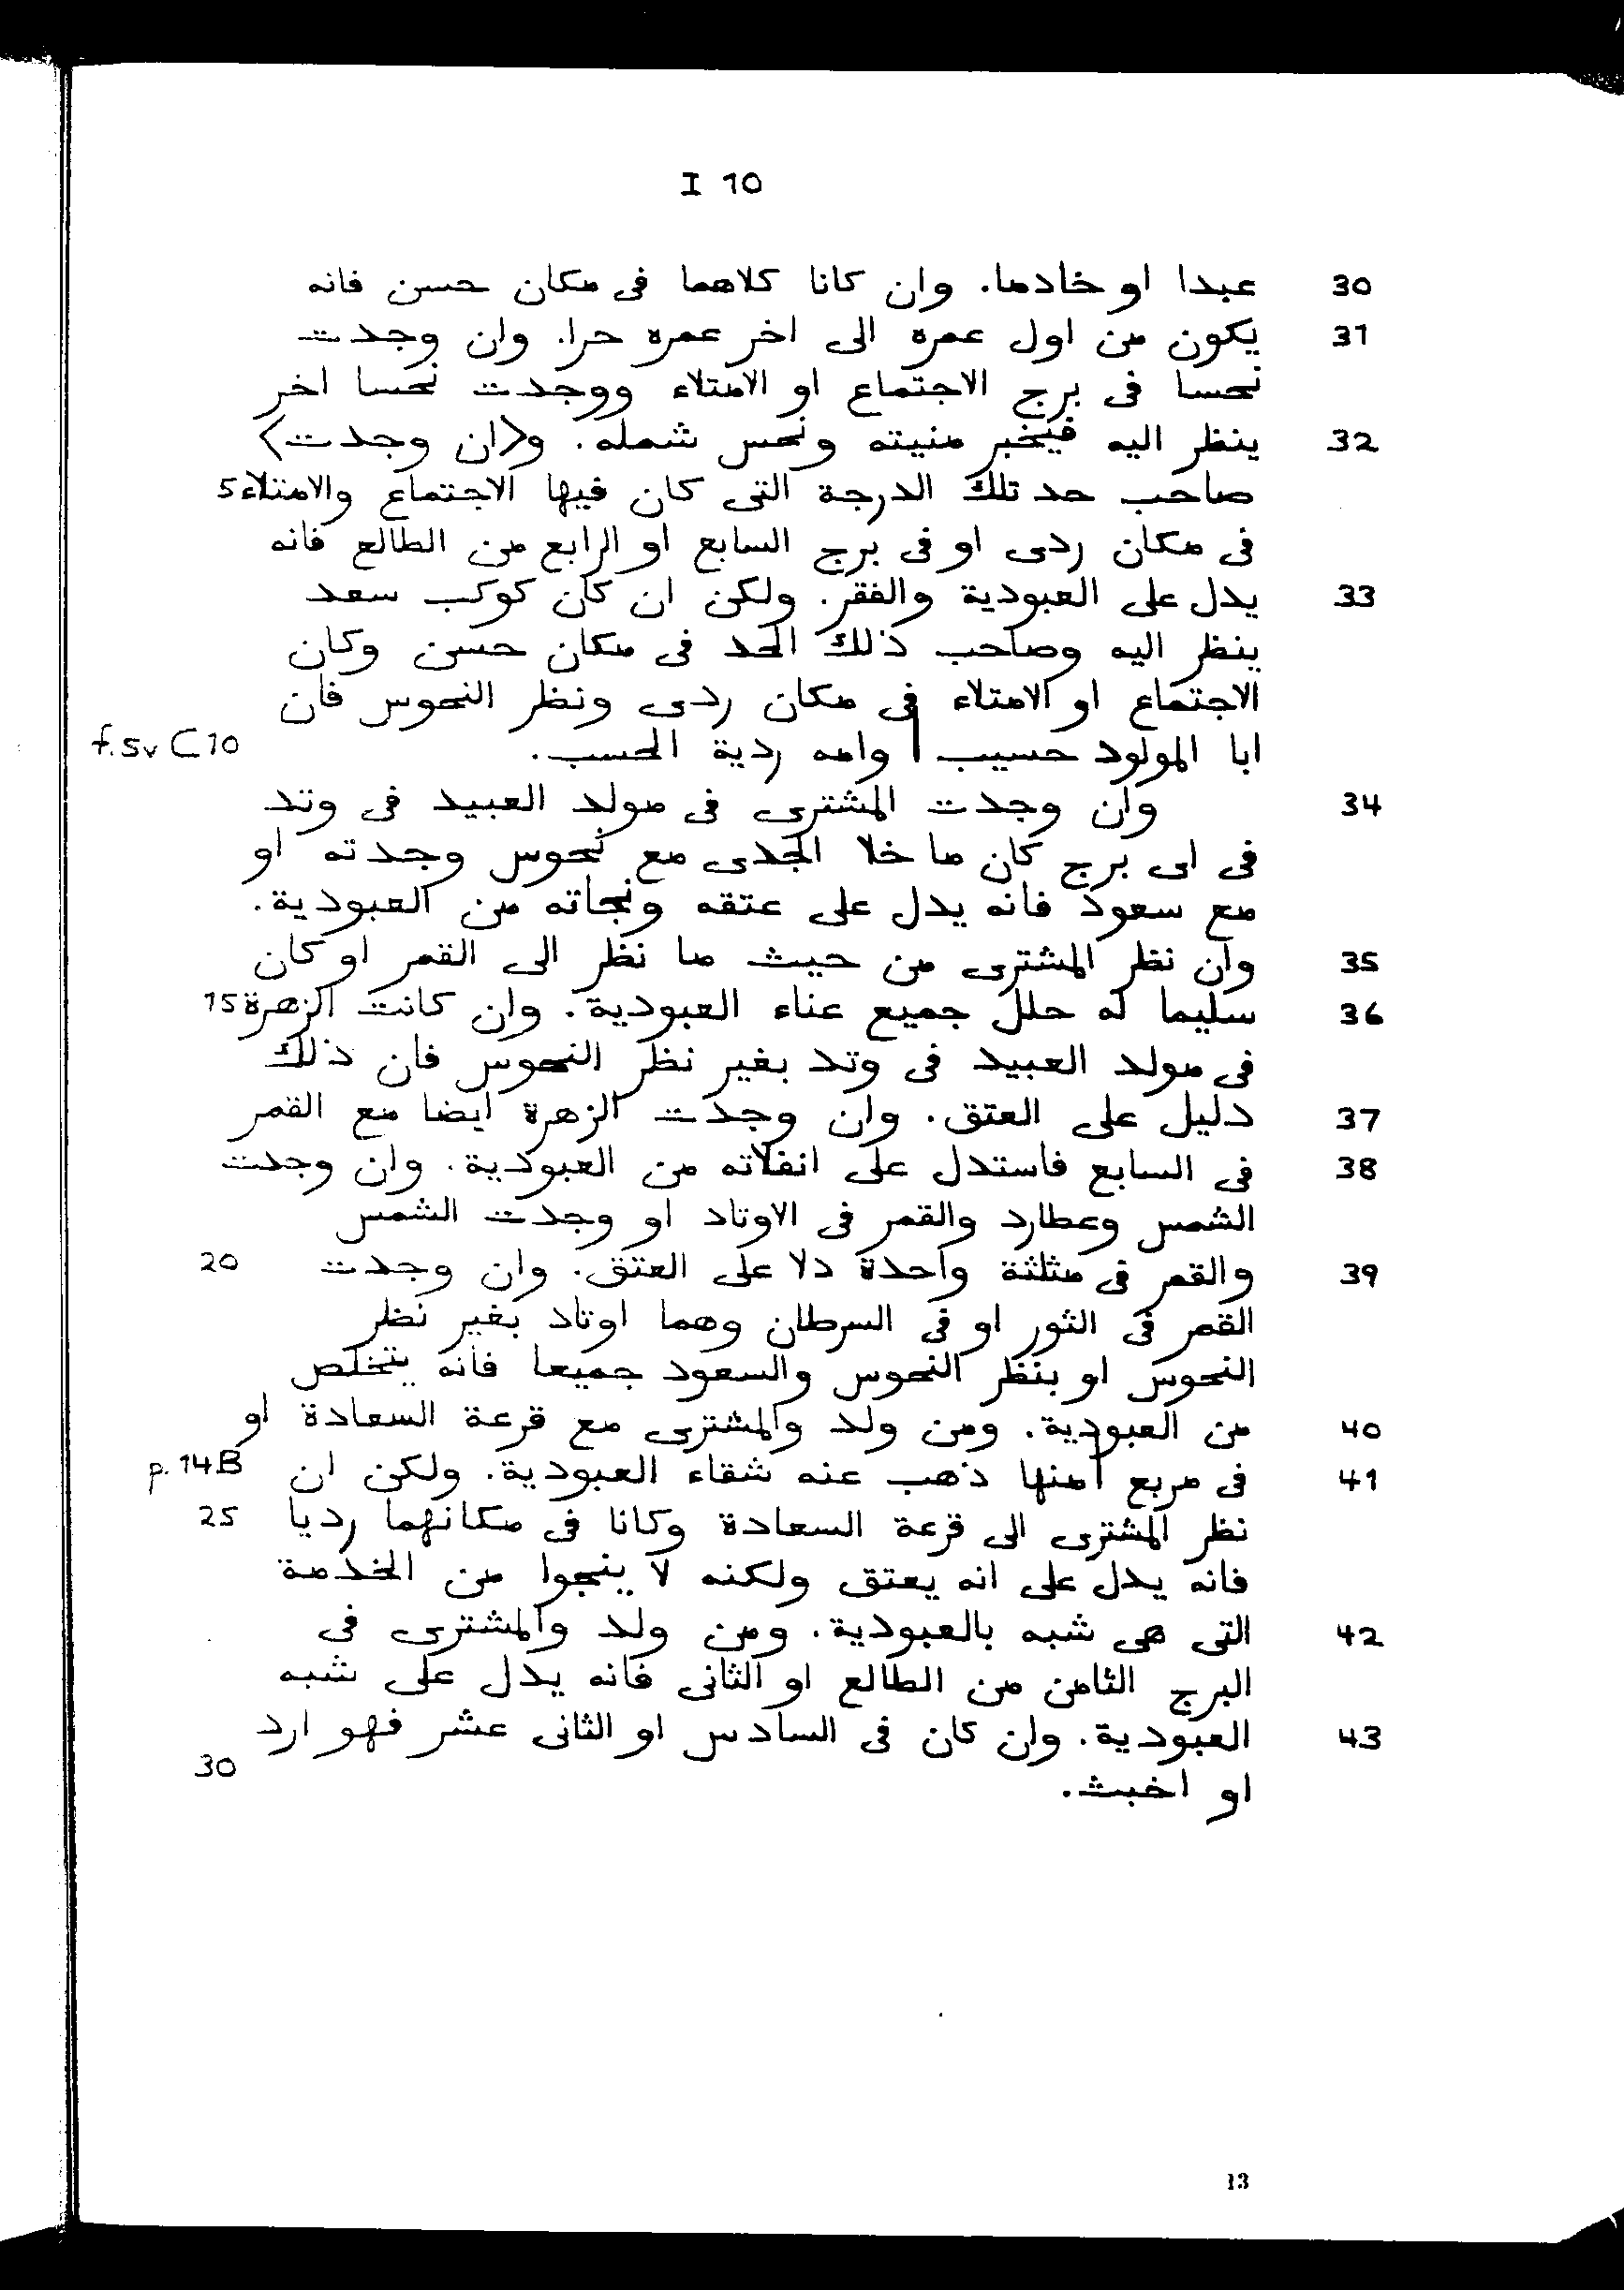 I 10
30 عبدا او خادما. وان كانا كلاهما فى مكان حسن فانه
31 يكون من اول عمره الى اخر عمره حرا. وان وجدت
نحسا فى برج الاجتماع او الامتلاء ووجدت نحسا اخر
32 ينظر اليه فيخبر منيته ونحس شمله. و<ان وجدت>
صاحب حد تلك الدرجة التى كان فيها الاجتماع والامتلاء 5
فى مكان ردى او فى برج السابع او الرابع من الطالع فانه
33 يدل على العبودية والفقر. ولكن ان كان كوكب سعد
ينظر اليه وصاحب ذلك الحد فى مكان حسن وكان
الاجتماع او الامتلاء فى مكان ردى ونظر النحوس فان
ابا المولود حسيب | وامه ردية الحسب. f.5v C 10
34 وان وجدت المشترى فى مولد العبيد فى وتد
فى اى برج كان ما خلا الجدى مع نحوس وجدته او
مع سعود فانه يدل على عتقه ونجاته من العبودية.
35 وان نظر المشترى من حيث ما نظر الى القمر او كان
36 سليما له حلل جميع عناء العبودية. وان كانت الزهرة 15
فى مولد العبيد فى وتد بغير نظر النحوس فان ذلك
37 دليل على العتق. وان وجدت الزهرة ايضا مع القمر
38 فى السابع فاستدل على انفلاته من العبودية. وان وجدت
الشمس وعطارد والقمر فى الاوتاد او وجدت الشمس
39 والقمر فى مثلثة واحدة دلا على العتق. وان وجدت 20
القمر فى الثور او فى السرطان وهما اوتاد بغير نظر
النحوس او بنظر النحوس والسعود جميعا فانه يتخلص
40 من العبودية. ومن ولد والمشترى مع قرعة السعادة او
41 فى مربع | منها ذهب عنه شقاء العبودية. ولكن ان p.14B
نظر المشترى الى قرعة السعادة وكانا فى مكانهما رديا 25
فانه يدل على انه يعتق ولكنه لا ينجوا من الخدمة
42 التى هى شبه بالعبودية. ومن ولد والمشترى فى
البرج الثامن من الطالع او الثانى فانه يدل على شبه
43 العبودية. وان كان فى السادس او الثانى عشر فهو ارد
او اخبث. 30
13